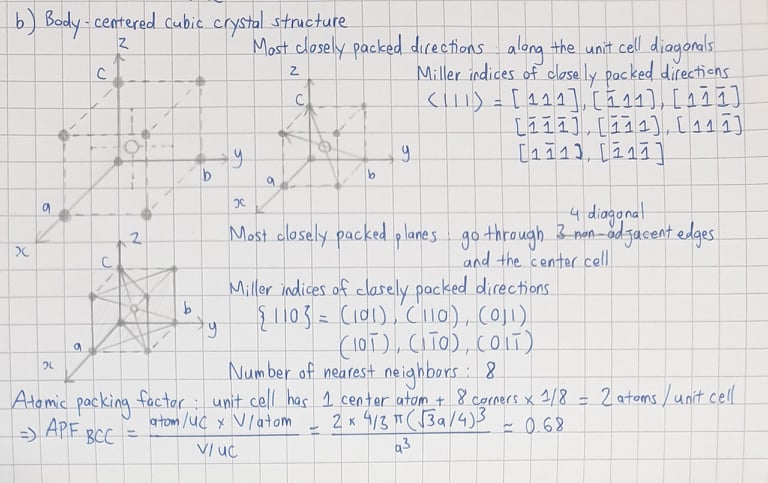 b) Body-centered cubic crystal structure
Most closely packed directions : along the unit cell diagonals
Miller indices of closely packed directions
<111> = [111], [1̄11], [11̄1̄]
[1̄1̄1̄], [1̄1̄1], [111̄]
[11̄1], [1̄11̄]
z
c
y
b
a
x
z
c
y
b
a
x
4 diagonal
Most closely packed planes : go through 3 non-adjacent edges
and the center cell
Miller indices of closely packed directions
{110} = (101), (110), (011)
(101̄), (11̄0), (011̄)
Number of nearest neighbors : 8
z
c
b
y
a
x
Atomic packing factor : unit cell has 1 center atom + 8 corners × 1/8 = 2 atoms/unit cell
=> APF BCC = atom/UC × V/atom / V/UC = 2 × 4/3 π(√3a/4)³ / a³ ≈ 0.68